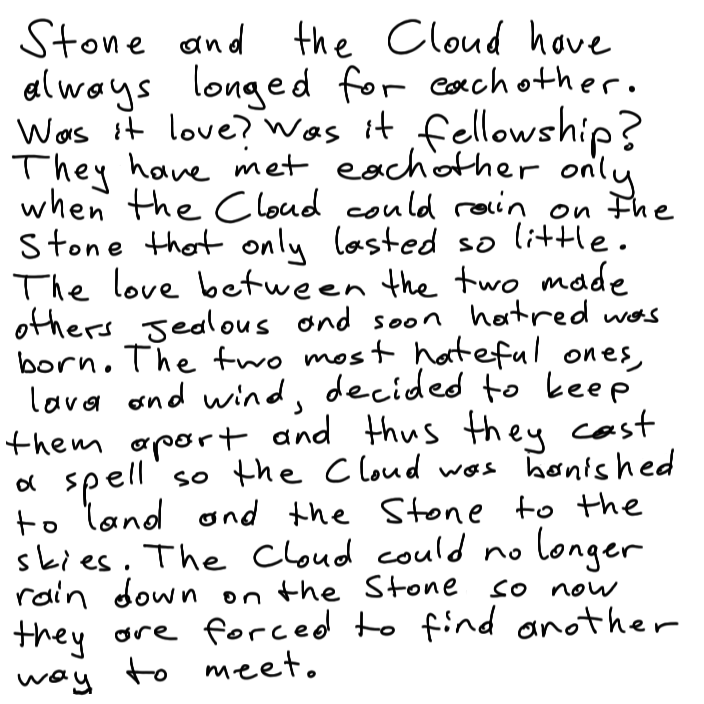 Stone and the Cloud have
always longed for eachother.
Was it love? Was it fellowship?
They have met eachother only
when the Cloud could rain on the
Stone that only lasted so little.
The love between the two made
others jealous and soon hatred was
born. The two most hateful ones,
lava and wind, decided to keep
them apart and thus they cast
a spell so the Cloud was banished
to land and the Stone to the
skies. The Cloud could no longer
rain down on the Stone so now
they are forced to find another
way to meet.